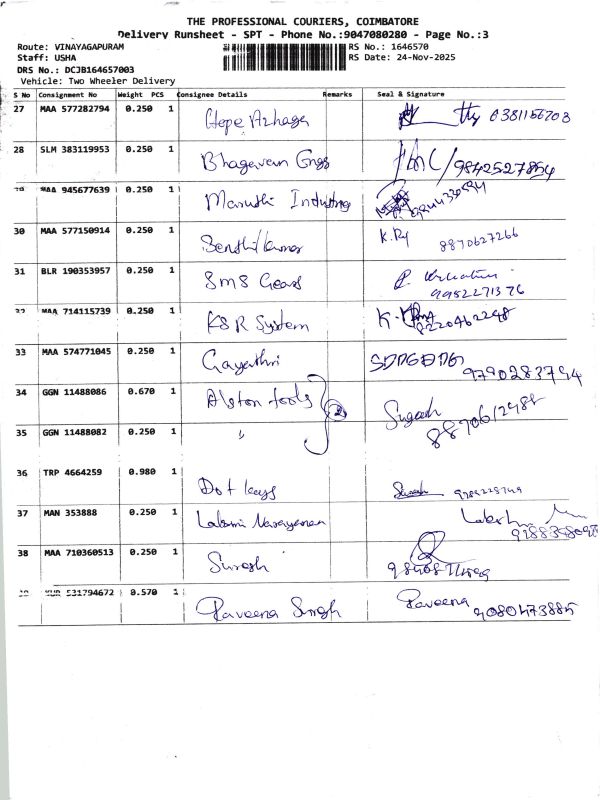 THE PROFESSIONAL COURIERS, COIMBATORE
Delivery Runsheet - SPT - Phone No.:9047080280 - Page No.:3
Route: VINAYAGAPURAM RS No.: 1646570
Staff: USHA RS Date: 24-Nov-2025
DRS No.: DCJB164657003
Vehicle: Two Wheeler Delivery
S No Consignment No Weight PCS Consignee Details Remarks Seal & Signature
27 MAA 577282794 0.250 1
28 SLM 383119953 0.250 1 Bhagavan Engs 9842527854
29 MAA 945677639 0.250 1 Maruthi
30 MAA 577150914 0.250 1 Senthilkumar K.Rj 8870627266
31 BLR 190353957 0.250 1 SMS Gears 9952271376
32 MAA 714115739 0.250 1 KSR System
33 MAA 574771045 0.250 1 Gayathri 9790283754
34 GGN 11488086 0.670 1 Alston tools 2
35 GGN 11488082 0.250 1 "
36 TRP 4664259 0.980 1 Dot keys
37 MAN 353888 0.250 1 Lakshmi Narayanan
38 MAA 710360513 0.250 1 Suresh
531794672 0.570 1 Raveena Singh Raveena 9080473885